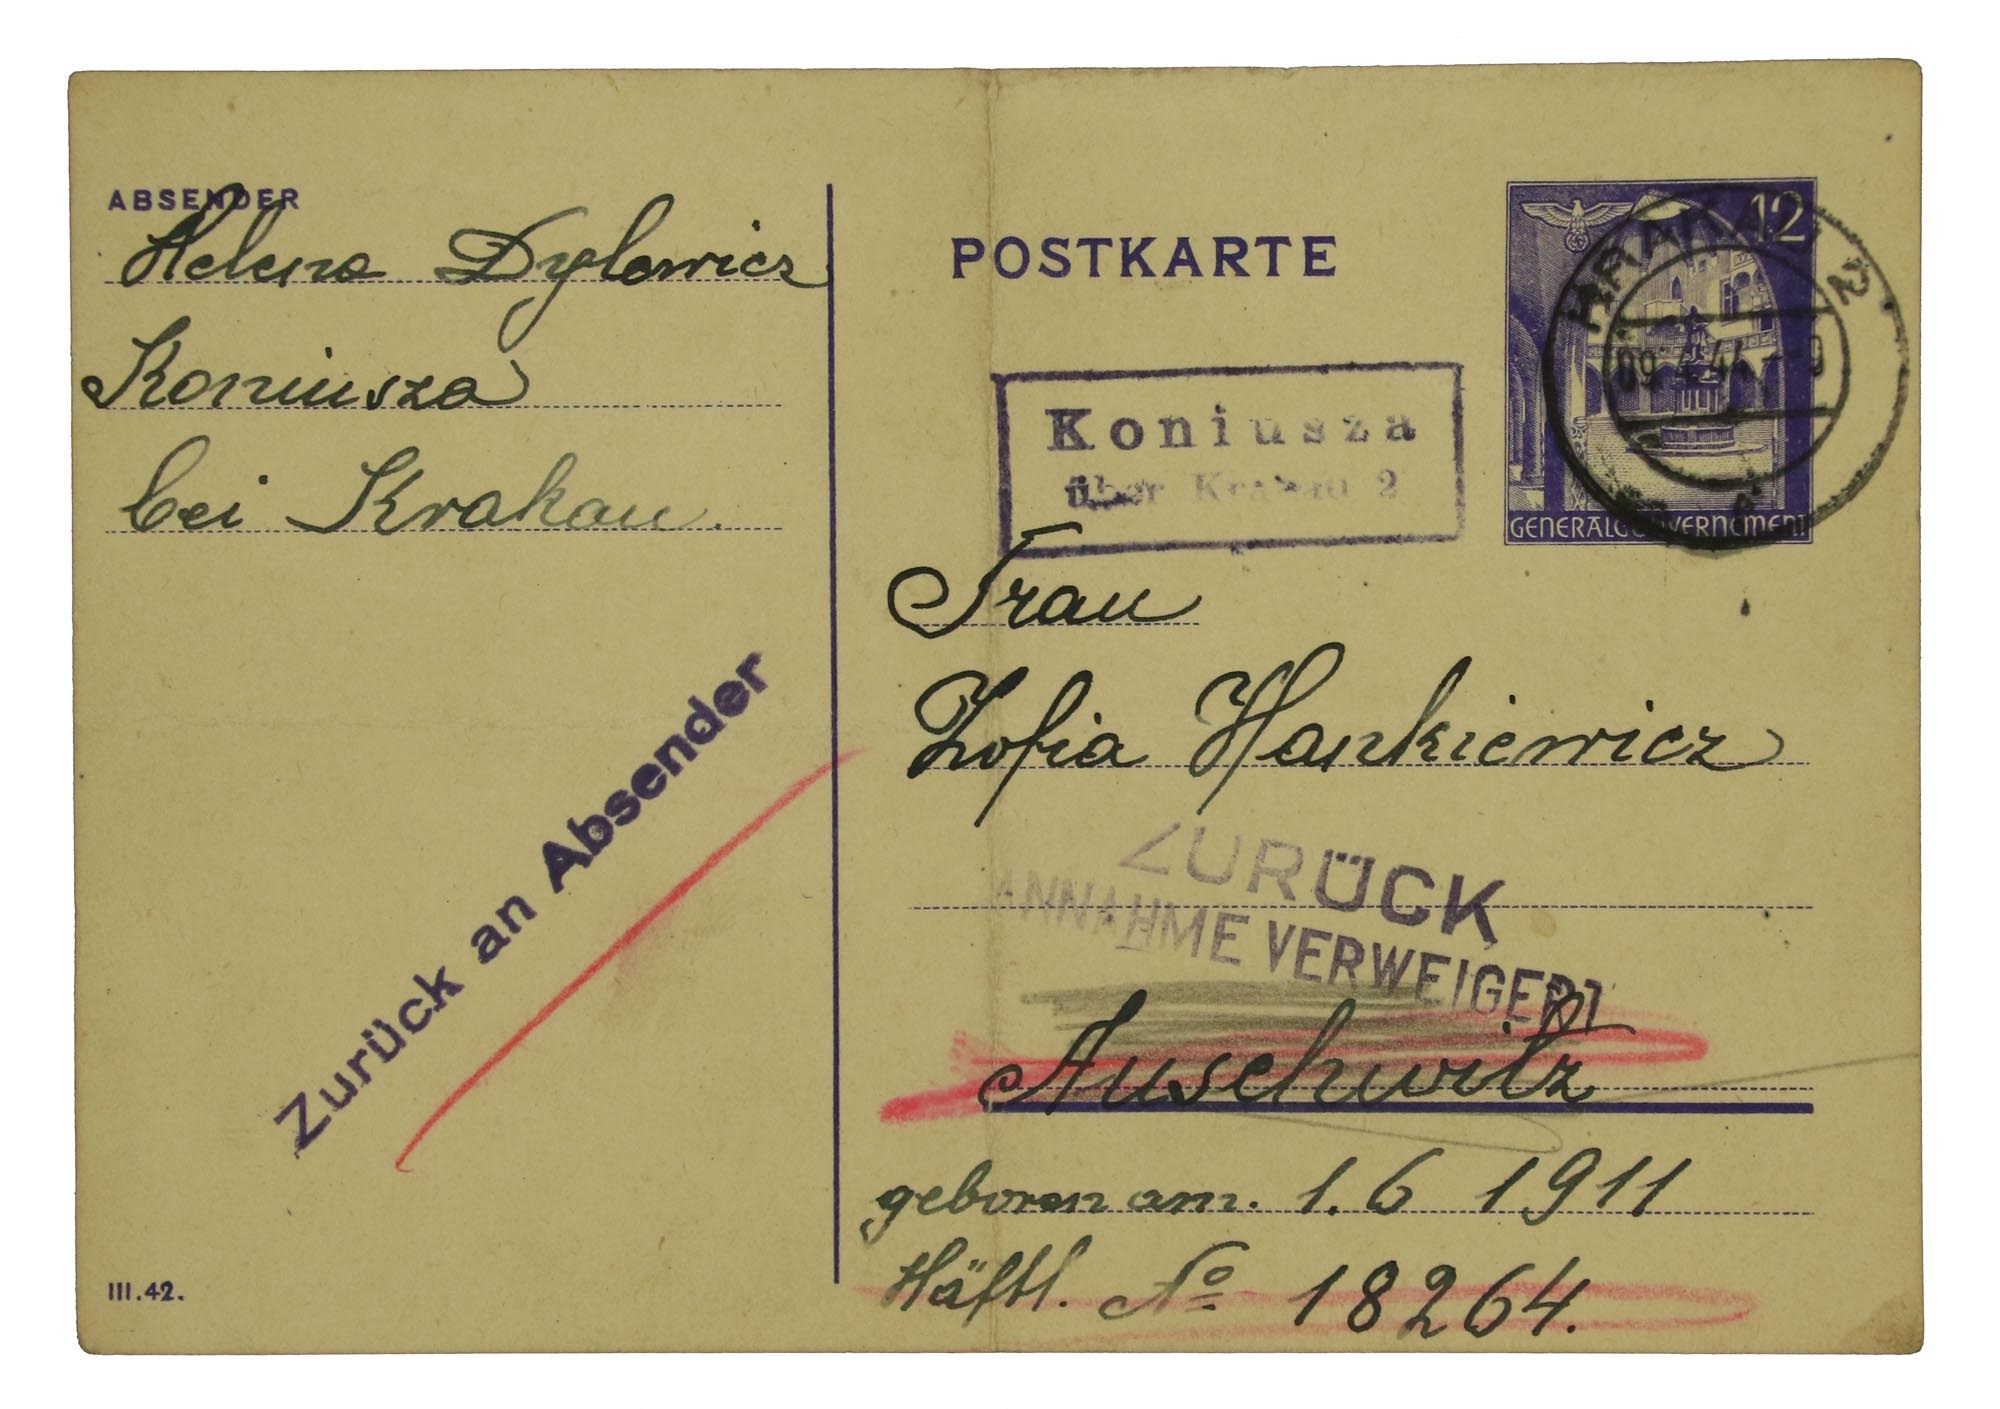 ABSENDER
Helena Dylowicz
Koniusza
bei Krakau.
Zurück an Absender
III.42.
POSTKARTE
12
KRAKAU 2
09.4.44.--9
GENERALGOUVERNEMENT
Koniusza
über Krakau 2
Frau
Zofia Hankiewicz
ZURÜCK
ANNAHME VERWEIGERT
Auschwitz
geboren am. 1. 6 1911
Häftl. No 18264.